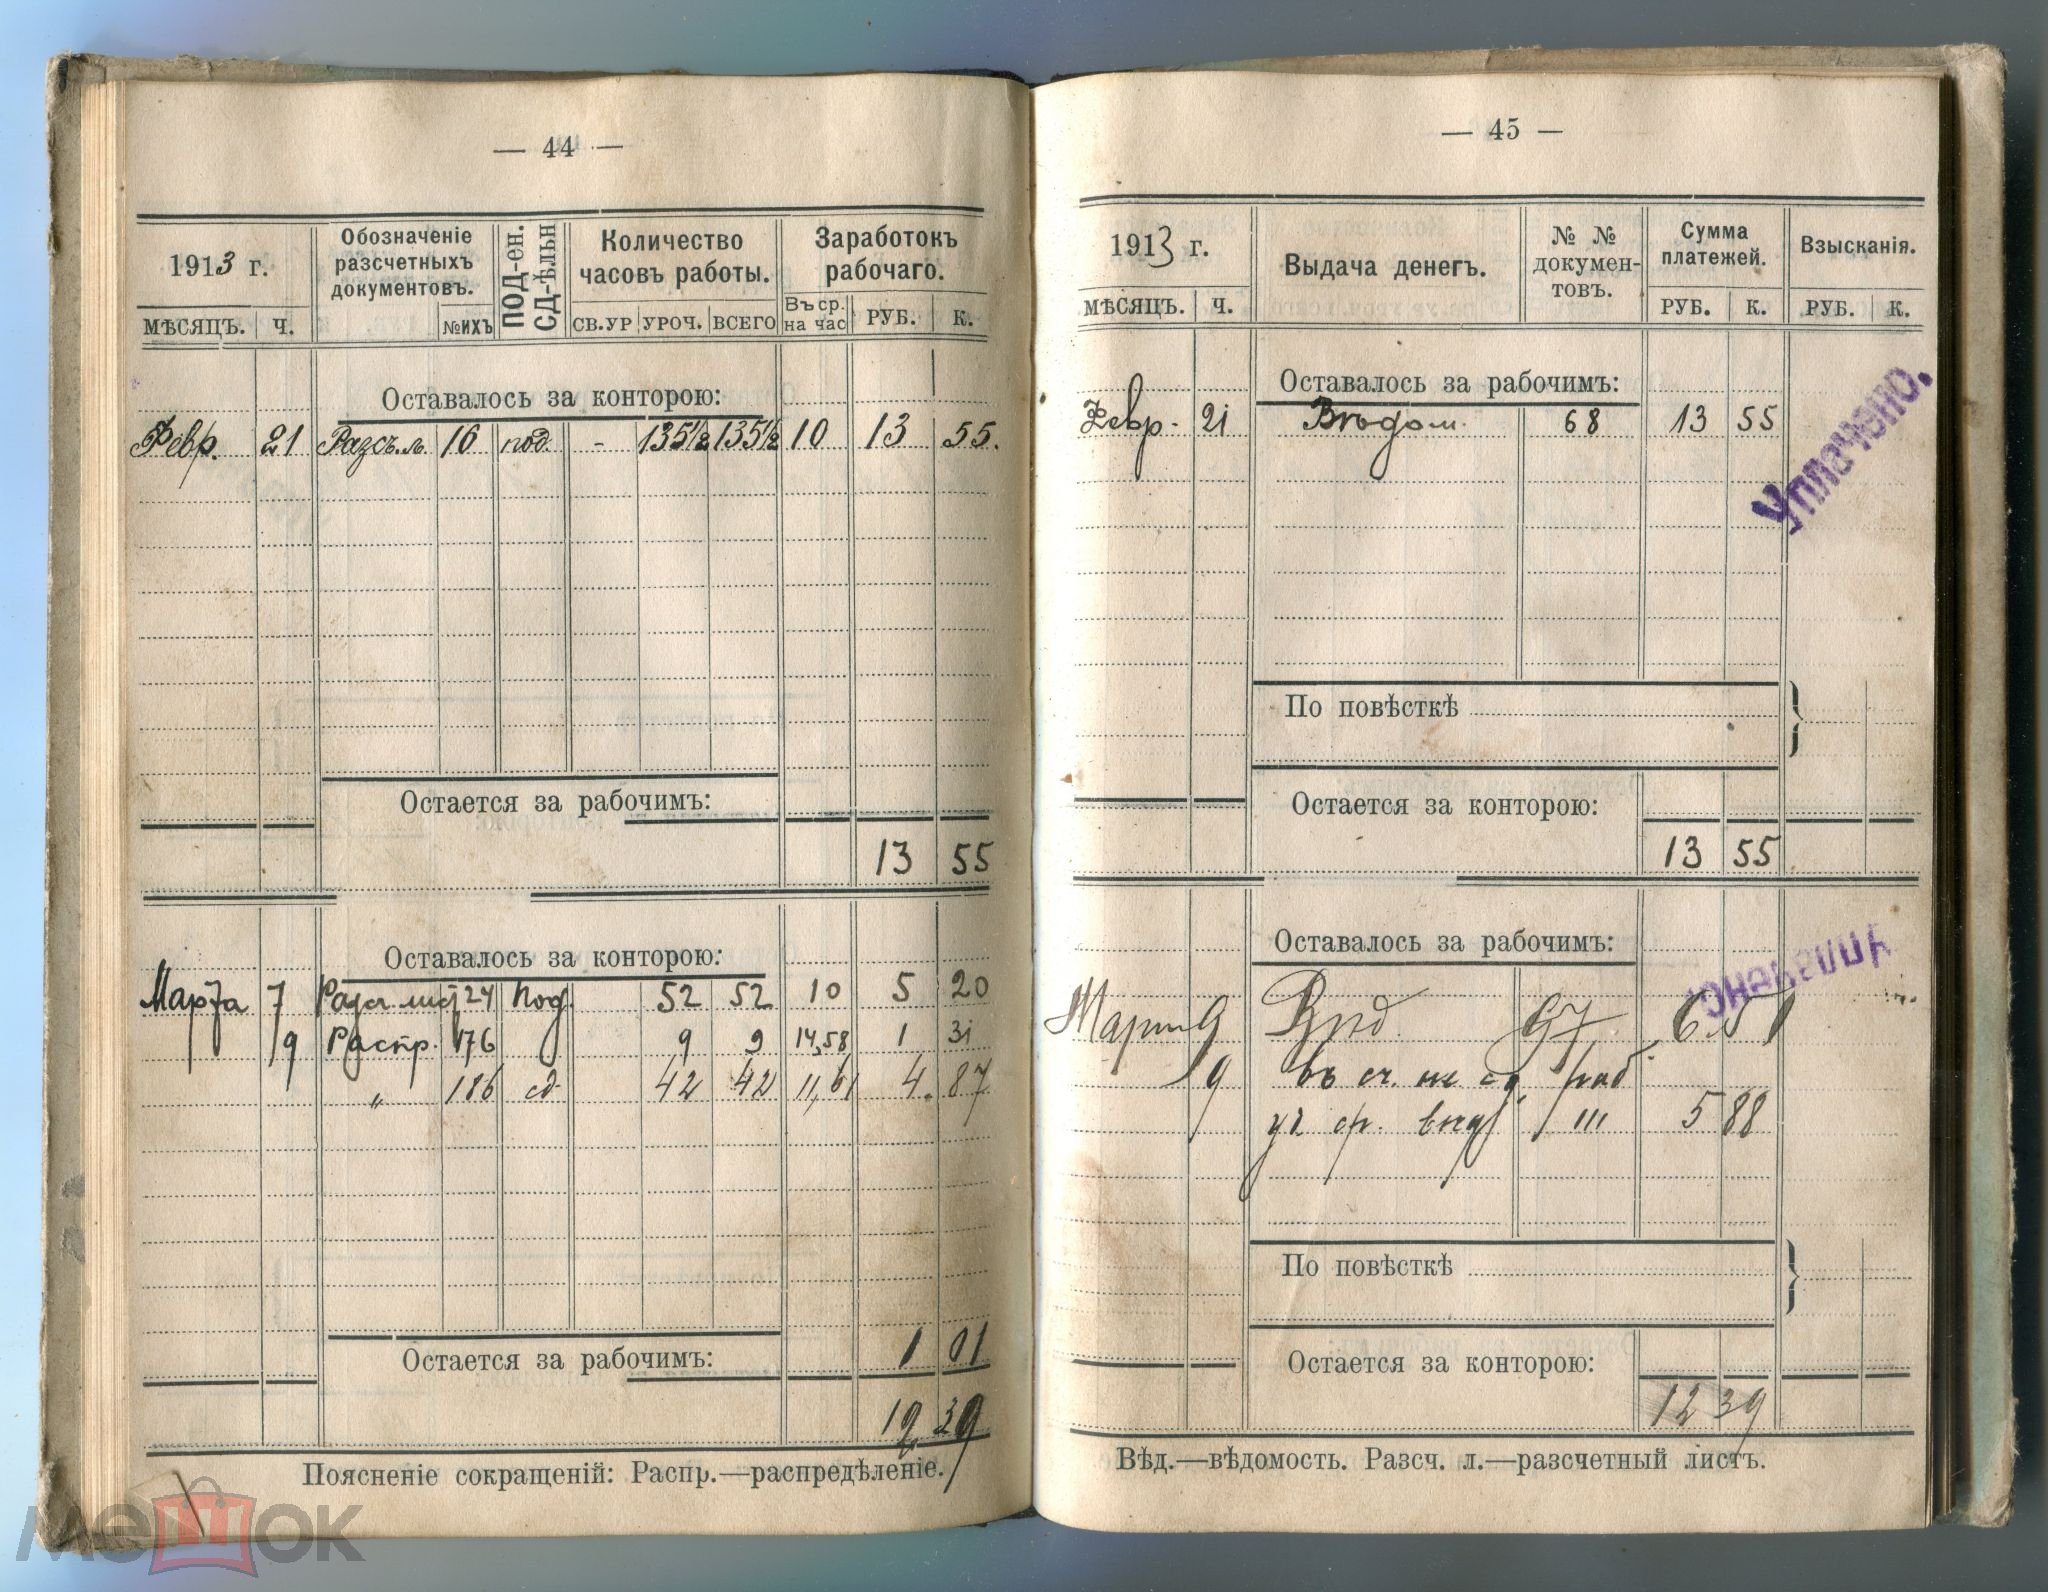 — 44 —
1913 г.
МѢСЯЦЪ. Ч.
Обозначеніе разсчетныхъ документовъ.
№ИХЪ
ПОД-ен.
СД-ѣльн
Количество часовъ работы.
СВ.УР УРОЧ. ВСЕГО
Заработокъ рабочаго.
Въ ср. на час РУБ. К.
Оставалось за конторою:
Февр. 21 Разсч. л. 16 под. - 135 1/2 135 1/2 10 13 55.
Остается за рабочимъ:
13 55
Оставалось за конторою:
Марта 7 Разсч. лист 24 Под. 52 52 10 5 20
9 Распр. 176 9 9 14,58 1 31
„ 186 сд 42 42 11,61 4. 87
Остается за рабочимъ: 1 01
12 39
Поясненіе сокращеній: Распр.—распредѣленіе.
мешок
— 45 —
1913 г.
МѢСЯЦЪ. Ч.
Выдача денегъ.
№ № докумен-товъ.
Сумма платежей.
РУБ. К.
Взысканія.
РУБ. К.
Оставалось за рабочимъ:
Февр. 21 Вѣдом. 68 13 55
Уплачено.
По повѣсткѣ
Остается за конторою:
13 55
Оставалось за рабочимъ:
Уплачено.
Марта 9 Вѣд. 97 6 51
9 въ сч. не сд. раб.
5 88
По повѣсткѣ
Остается за конторою:
12 39
Вѣд.—вѣдомость. Разсч. л.—разсчетный листъ.